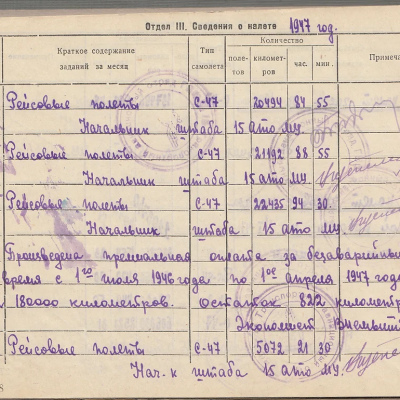 Отдел III. Сведения о налете 1947 год.
Краткое содержание заданий за месяц
Тип самолета
Количество
полетов
километров
час.
мин.
Примеча
Рейсовые полеты С-47 20494 84 55
Начальник штаба 15 ато МУ.
Рейсовые полеты С-47 21192 88 55
Начальник штаба 15 ато МУ
Рейсовые полеты С-47 22435 94 30
Начальник штаба 15 ато МУ.
Произведена премиальная оплата за безаварийный
время с 1го июля 1946 года по 1ое апреля 1947 года
180000 километров. Остаток 822 километр
Экономист
Рейсовые полеты С-47 5072 21 30
Нач-к штаба 15 ато МУ.
8